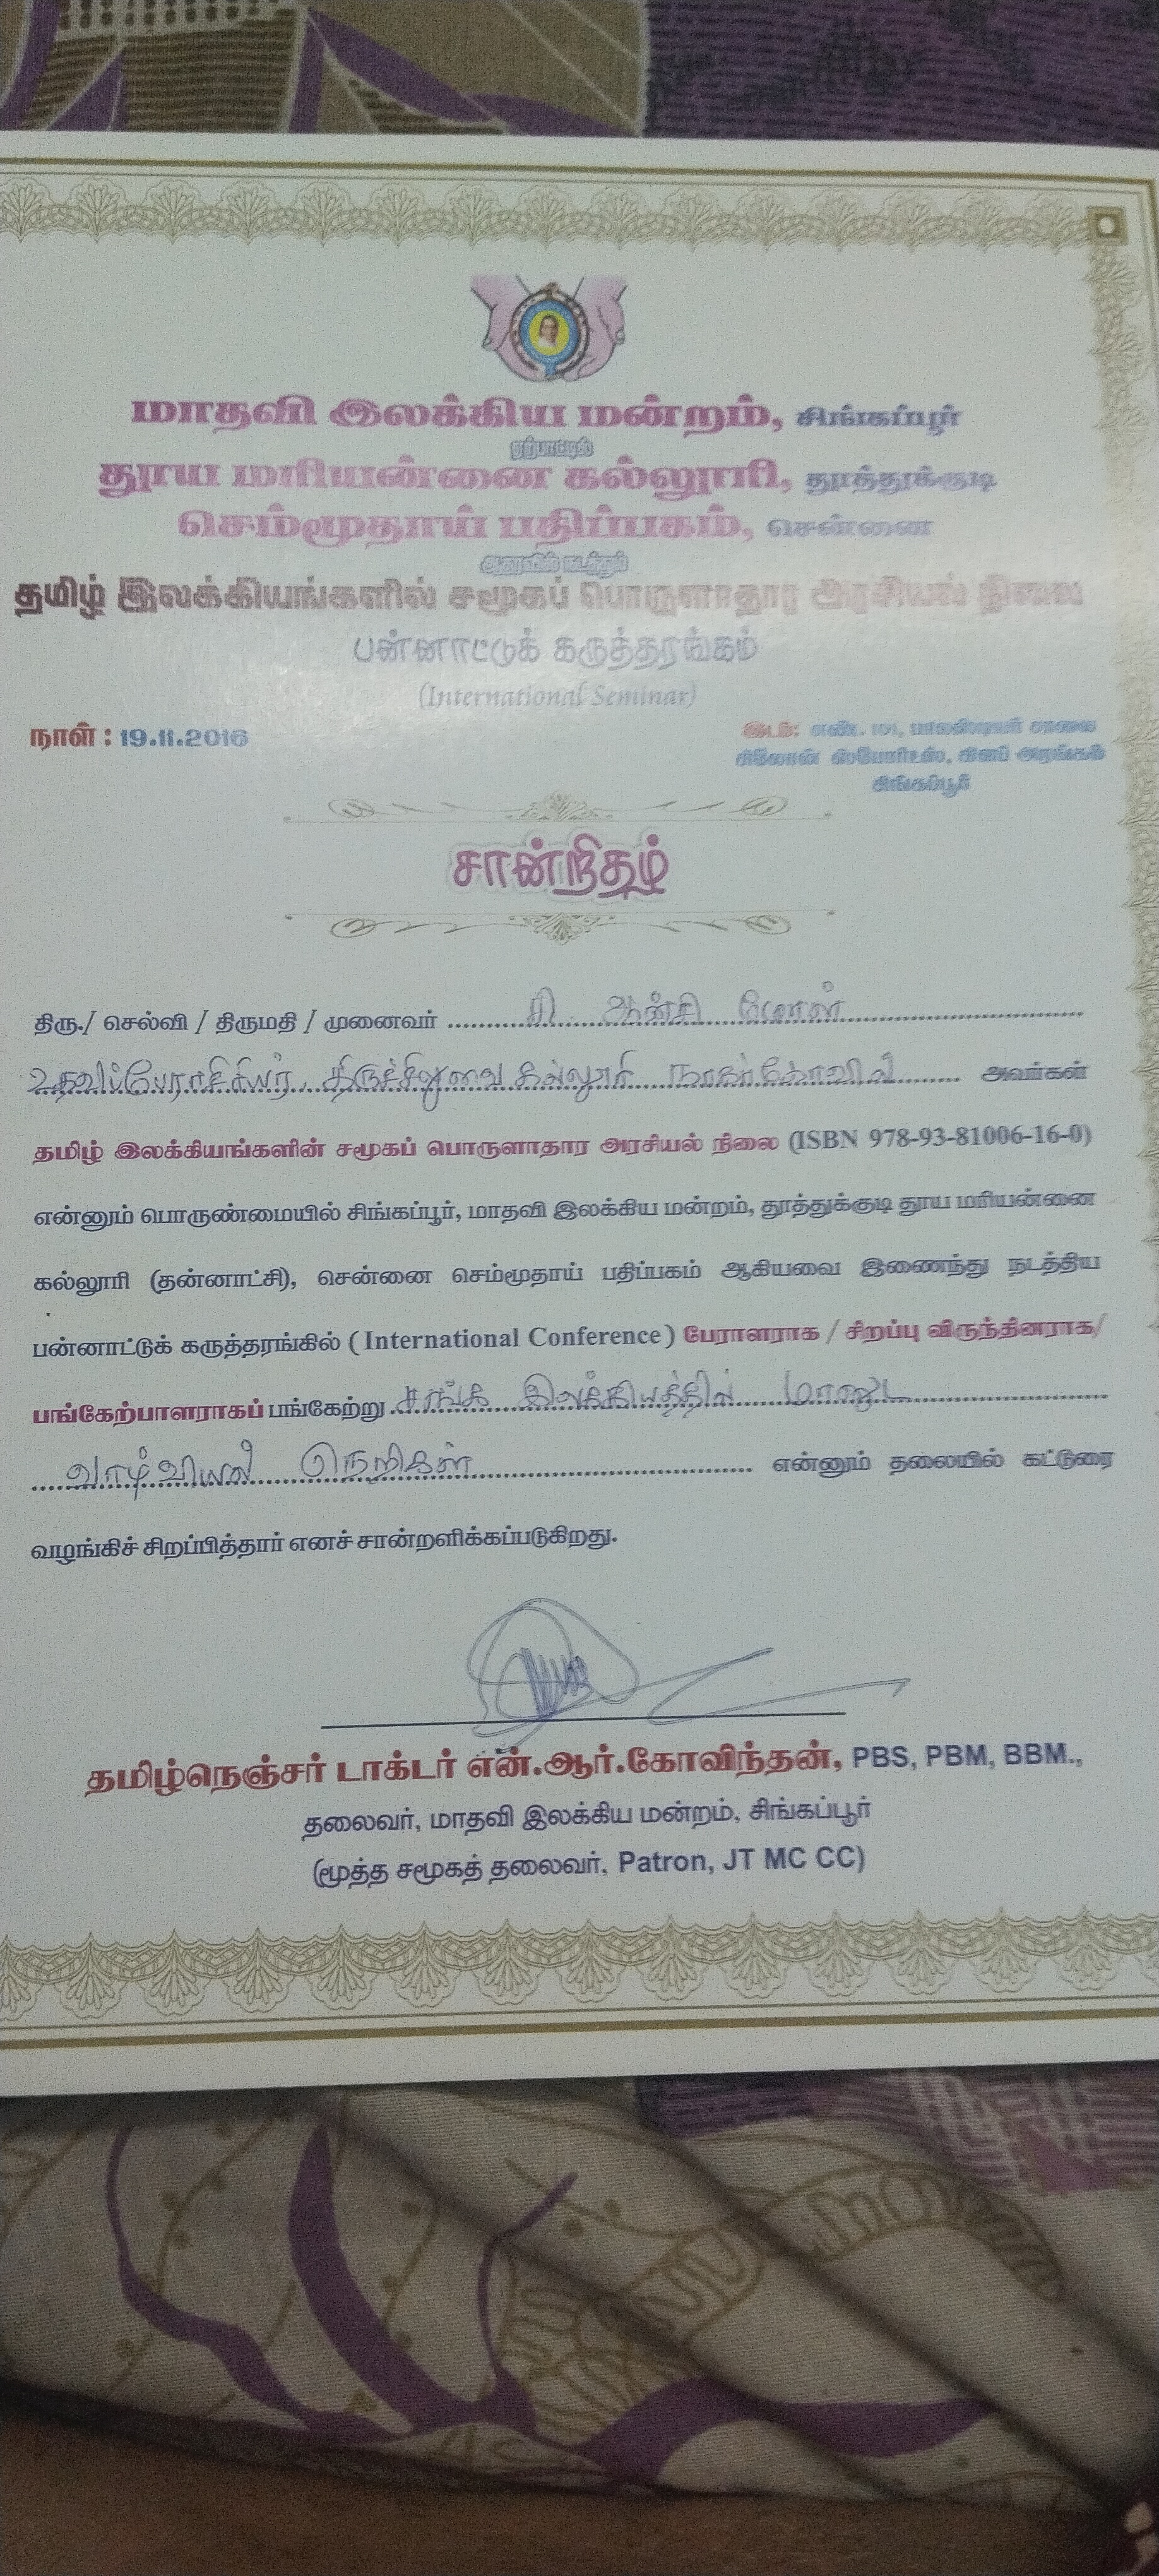 மாதவி இலக்கிய மன்றம், சிங்கப்பூர்
ஏற்பாட்டில்
தூய மரியன்னை கல்லூரி, தூத்துக்குடி
செம்மூதாய் பதிப்பகம், சென்னை
ஆதரவில் நடத்தும்
தமிழ் இலக்கியங்களில் சமூகப் பொருளாதார அரசியல் நிலை
பன்னாட்டுக் கருத்தரங்கம்
(International Seminar)
நாள் : 19.11.2016
இடம்: எண். 101, பாலஸ்டியர் சாலை
சிலோன் ஸ்போர்ட்ஸ், கிளப் அரங்கம்
சிங்கப்பூர்
சான்றிதழ்
திரு./ செல்வி / திருமதி / முனைவர் சி. ஆன்சி மோள்
உதவிப்பேராசிரியர், திருச்சிலுவை கல்லூரி நாகர்கோவில் அவர்கள்
தமிழ் இலக்கியங்களின் சமூகப் பொருளாதார அரசியல் நிலை (ISBN 978-93-81006-16-0)
என்னும் பொருண்மையில் சிங்கப்பூர், மாதவி இலக்கிய மன்றம், தூத்துக்குடி தூய மரியன்னை
கல்லூரி (தன்னாட்சி), சென்னை செம்மூதாய் பதிப்பகம் ஆகியவை இணைந்து நடத்திய
பன்னாட்டுக் கருத்தரங்கில் (International Conference) பேராளராக / சிறப்பு விருந்தினராக/
பங்கேற்பாளராகப் பங்கேற்று சங்க இலக்கியத்தில் மானுட
வாழ்வியல் நெறிகள் என்னும் தலையில் கட்டுரை
வழங்கிச் சிறப்பித்தார் எனச் சான்றளிக்கப்படுகிறது.
தமிழ்நெஞ்சர் டாக்டர் என்.ஆர்.கோவிந்தன், PBS, PBM, BBM.,
தலைவர், மாதவி இலக்கிய மன்றம், சிங்கப்பூர்
(மூத்த சமூகத் தலைவர், Patron, JT MC CC)